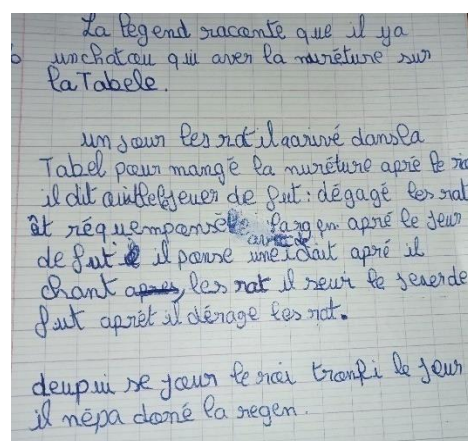 La légend raconte que il ya
un chatau qui aver la nuréture sur
la Tabele.
un jour les rat il aarivé dans la
Tabel pour mangé la nuréture apré le roi
il dit jeuer de flut : dégagé les rat
ât réquempansé largen apré le jeur
de flut il panse une idait apré il
chant les rat il seuir le jeuer de
flut aprét il dénage les rat.
deupui se jour le roi tranpi le jeur
il népa doné la regen.